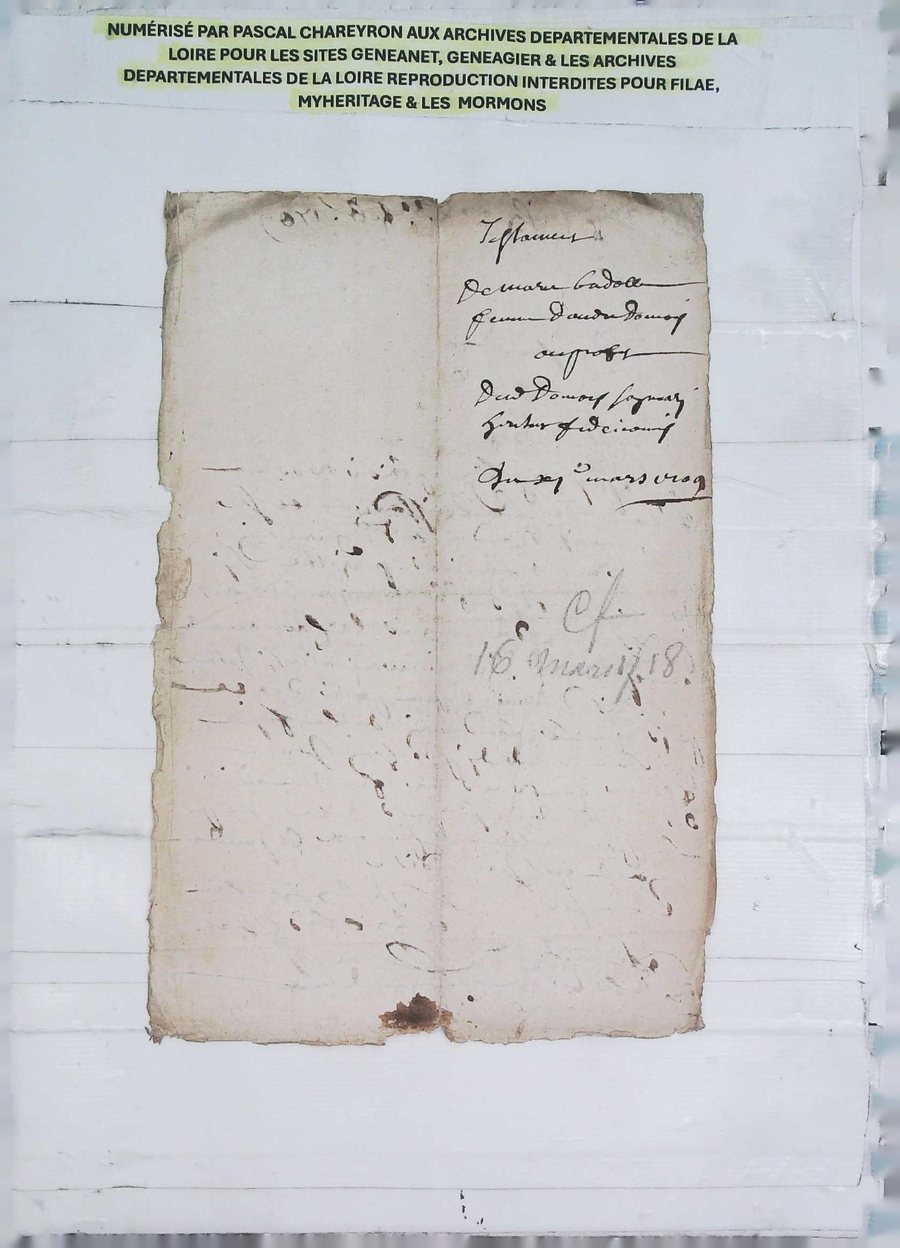 NUMÉRISÉ PAR PASCAL CHAREYRON AUX ARCHIVES DEPARTEMENTALES DE LA
LOIRE POUR LES SITES GENEANET, GENEAGIER & LES ARCHIVES
DEPARTEMENTALES DE LA LOIRE REPRODUCTION INTERDITES POUR FILAE,
MYHERITAGE & LES MORMONS
Testament
De marie badolle
femme Dandre Damois
au profit
Dud Damois son mary
heritier fideicomis
Du mars 1709
Cf
16 mars 1718